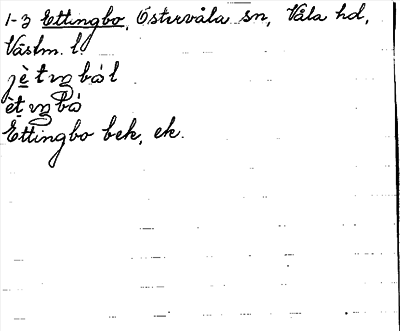 1-3 Ettingbo, Östervåla sn, Våla hd,
Västm. l.
jè̱tıŋbå̀l
èt̲ıŋbå̀
Ettingbo bek, ek.